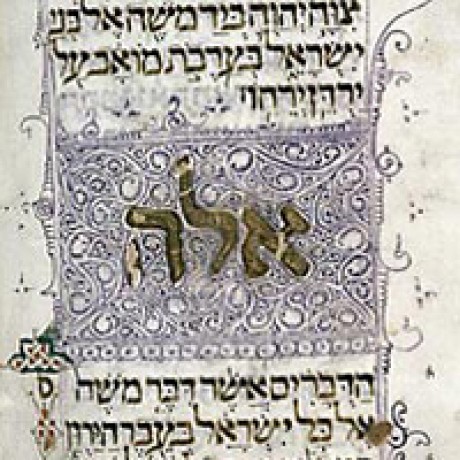 צוה יהוה ביד משה אל בני
ישראל בערבת מואב על
ירדן ירחו
אלה
הדברים אשר דבר משה
אל כל ישראל בעבר הירדן